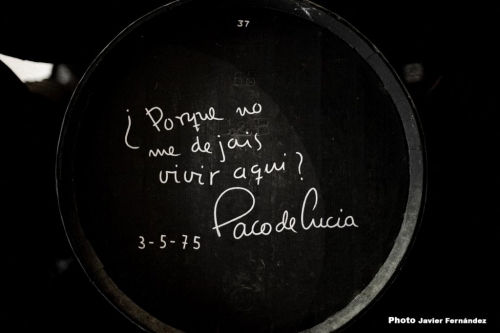 37
¿ Porque no
me dejais
vivir aqui?
Paco de Lucia
3-5-75
Photo Javier Fernández